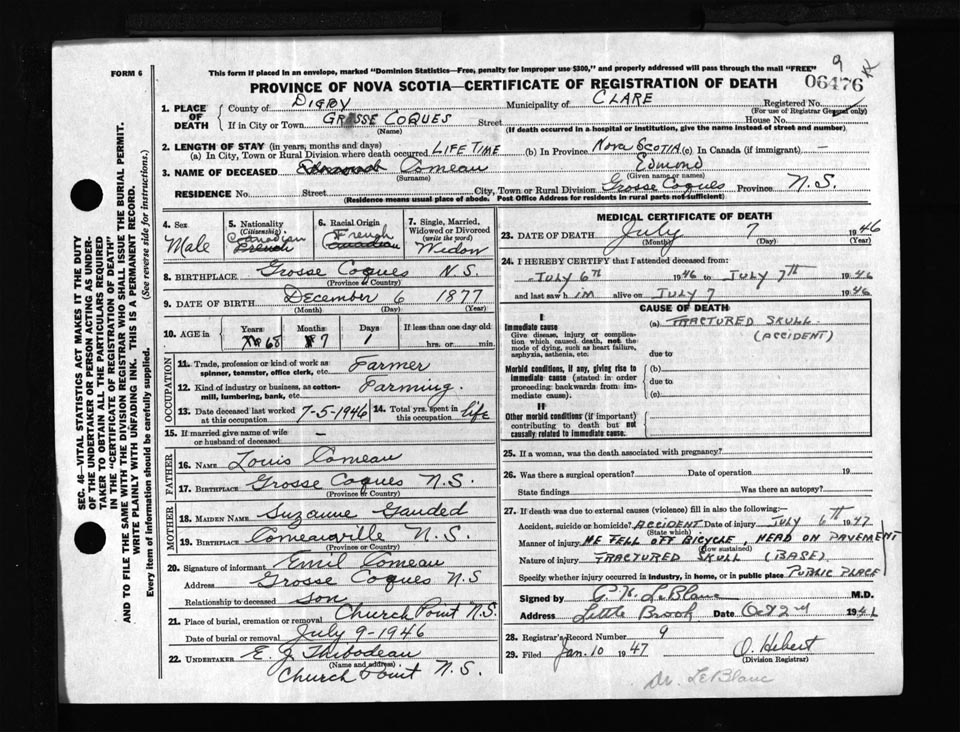 FORM 6
This form if placed in an envelope, marked "Dominion Statistics—Free, penalty for improper use $300," and properly addressed will pass through the mail "FREE"
9
PROVINCE OF NOVA SCOTIA—CERTIFICATE OF REGISTRATION OF DEATH
06476
1. PLACE OF DEATH
County of DIGBY Municipality of CLARE Registered No.
(For use of Registrar General only)
If in City or Town GROSSE COQUES Street House No.
(Name) (If death occurred in a hospital or institution, give the name instead of street and number)
2. LENGTH OF STAY (in years, months and days)
(a) In City, Town or Rural Division where death occurred LIFE TIME (b) In Province NOVA SCOTIA (c) In Canada (if immigrant) —
3. NAME OF DECEASED Comeau Edmond
(Surname) (Given name or names)
RESIDENCE No. Street City, Town or Rural Division Grosse Coques Province N.S.
(Residence means usual place of abode. Post Office Address for residents in rural parts not sufficient)
4. Sex Male
5. Nationality (Citizenship) Canadian French
6. Racial Origin French Canadian
7. Single, Married, Widowed or Divorced (write the word) Widow
8. BIRTHPLACE Grosse Coques N.S.
(Province or Country)
9. DATE OF BIRTH December 6 1877
(Month) (Day) (Year)
10. AGE in Years 68 Months 7 Days 1 If less than one day old
hrs. or min.
OCCUPATION
11. Trade, profession or kind of work as spinner, teamster, office clerk, etc. Farmer
12. Kind of industry or business, as cotton-mill, lumbering, bank, etc. Farming.
13. Date deceased last worked at this occupation 7-5-1946
14. Total yrs. spent in this occupation life
15. If married give name of wife or husband of deceased —
FATHER
16. NAME Louis Comeau
17. BIRTHPLACE Grosse Coques N.S.
(Province or Country)
MOTHER
18. MAIDEN NAME Suzanne Gauded
19. BIRTHPLACE Comeauville N.S.
(Province or Country)
20. Signature of informant Emil Comeau
Address Grosse Coques N S
Relationship to deceased son
21. Place of burial, cremation or removal Church Point N.S.
Date of burial or removal July 9-1946
22. UNDERTAKER E J Thibodeau
(Name and address)
Church Point N.S.
MEDICAL CERTIFICATE OF DEATH
23. DATE OF DEATH July 7 1946
(Month) (Day) (Year)
24. I HEREBY CERTIFY that I attended deceased from:
JULY 6TH 1946 to JULY 7TH 1946
and last saw h IM alive on JULY 7 1946
CAUSE OF DEATH
I
Immediate cause
Give disease, injury or complication which caused death, not the mode of dying, such as heart failure, asphyxia, asthenia, etc.
(a) FRACTURED SKULL.
(ACCIDENT)
due to
Morbid conditions, if any, giving rise to immediate cause (stated in order proceeding backwards from immediate cause).
(b)
due to
(c)
II
Other morbid conditions (if important) contributing to death but not causally related to immediate cause.
25. If a woman, was the death associated with pregnancy?
26. Was there a surgical operation? Date of operation 19
State findings Was there an autopsy?
27. If death was due to external causes (violence) fill in also the following:—
Accident, suicide or homicide? ACCIDENT Date of injury JULY 6TH 1947
(State which)
Manner of injury HE FELL OFF BICYCLE, HEAD ON PAVEMENT
(How sustained)
Nature of injury FRACTURED SKULL (BASE)
Specify whether injury occurred in industry, in home, or in public place PUBLIC PLACE
Signed by LeBlanc M.D.
Address Little Brook Oct 2nd 194
28. Registrar's Record Number 9
29. Filed Jan. 10 1947 O. Hebert
(Division Registrar)
Dr. LeBlanc
SEC. 46—VITAL STATISTICS ACT MAKES IT THE DUTY
OF THE UNDERTAKER OR PERSON ACTING AS UNDER-
TAKER TO OBTAIN ALL THE PARTICULARS REQUIRED
IN THE "CERTIFICATE OF REGISTRATION OF DEATH"
AND TO FILE THE SAME WITH THE DIVISION REGISTRAR WHO SHALL ISSUE THE BURIAL PERMIT.
WRITE PLAINLY WITH UNFADING INK. THIS IS A PERMANENT RECORD.
Every item of information should be carefully supplied. (See reverse side for instructions.)